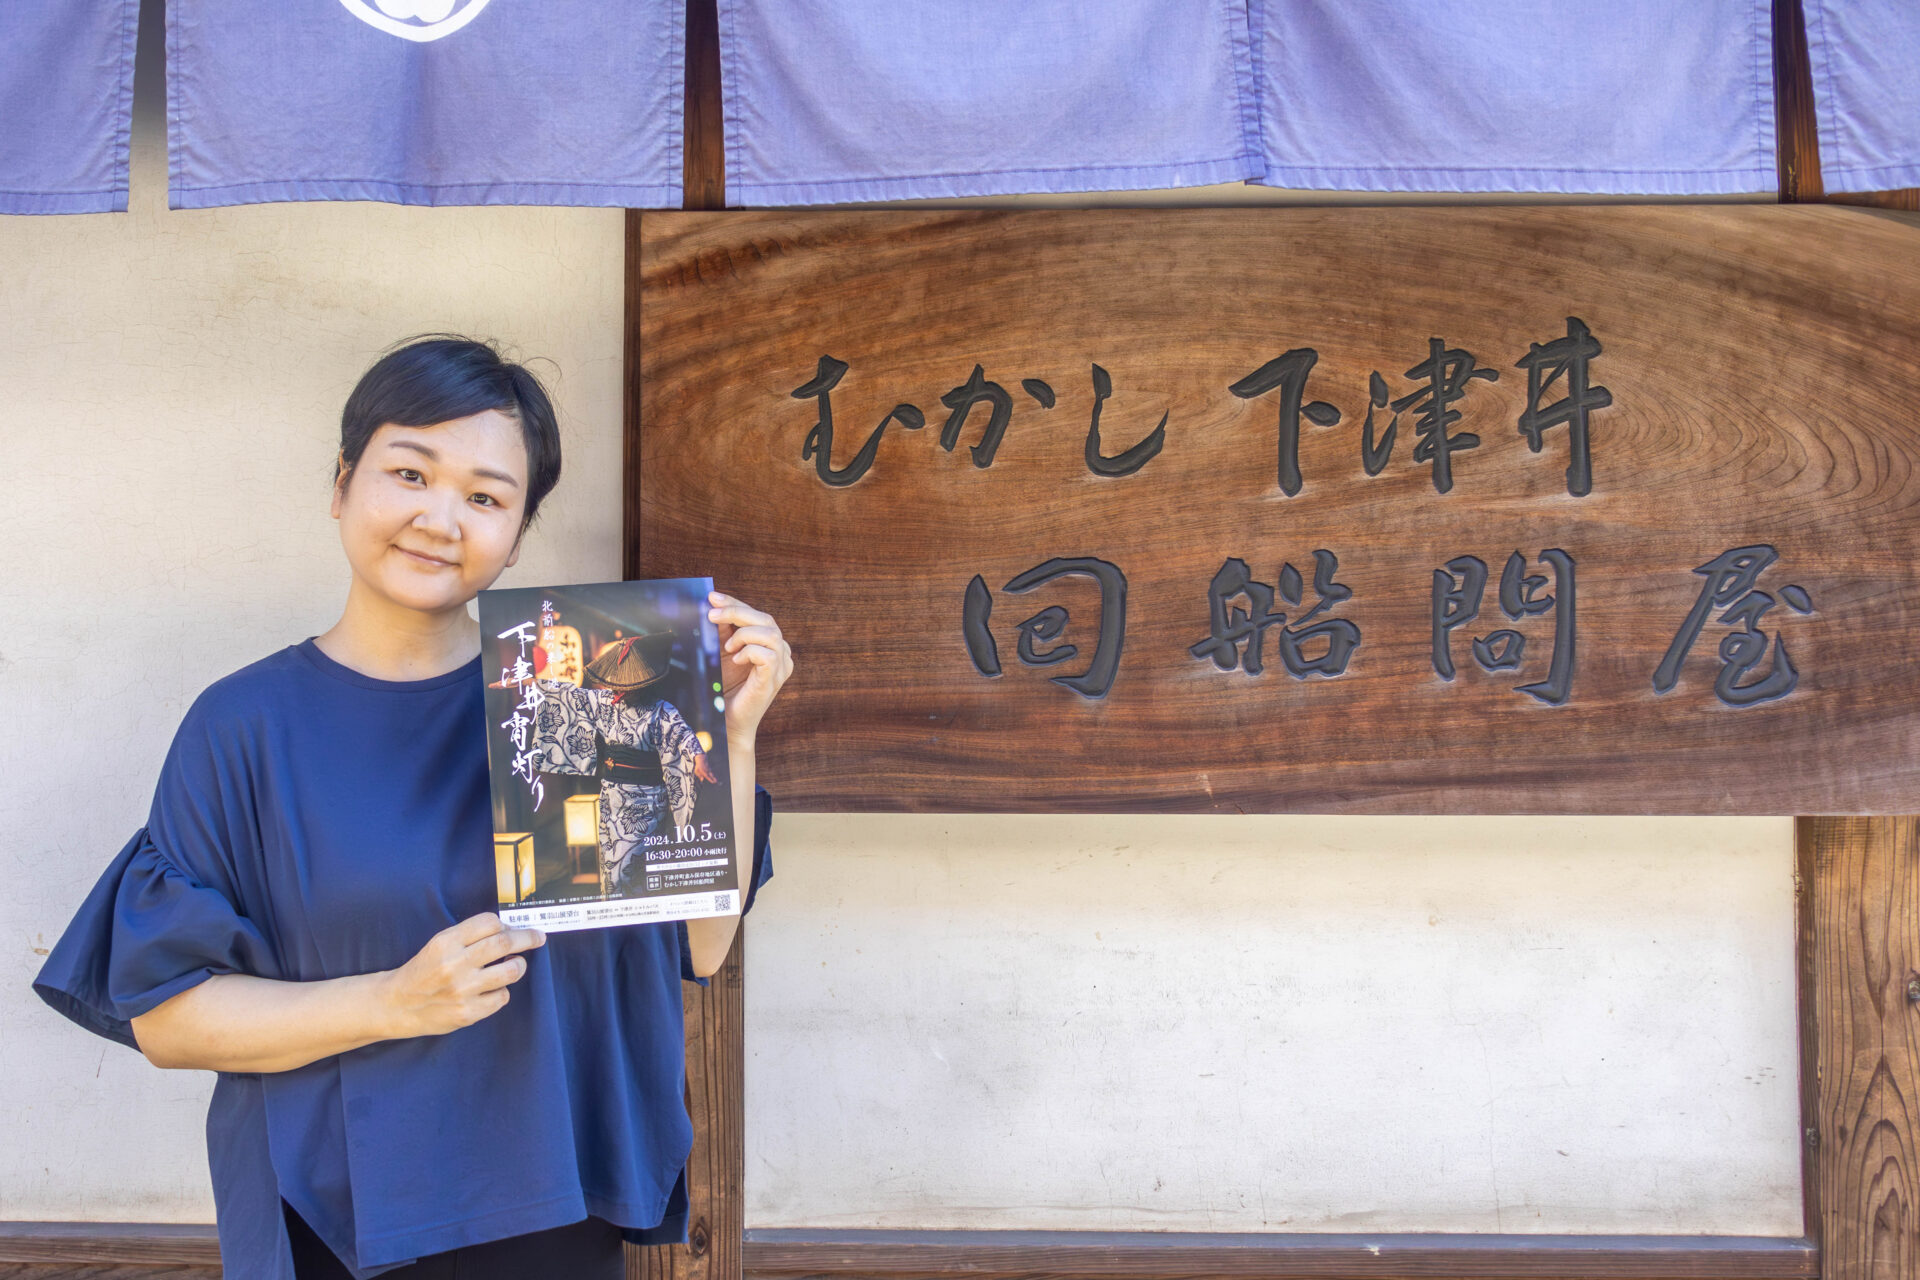 むかし下津井
回船問屋
北前船の
下津井宵灯り
2024.10.5(土)
16:30-20:00 小雨決行
下津井町並み保存地区通り・
むかし下津井回船問屋
駐車場 | 鷲羽山展望台
鷲羽山展望台 ⇔ 下津井 シャトルバス